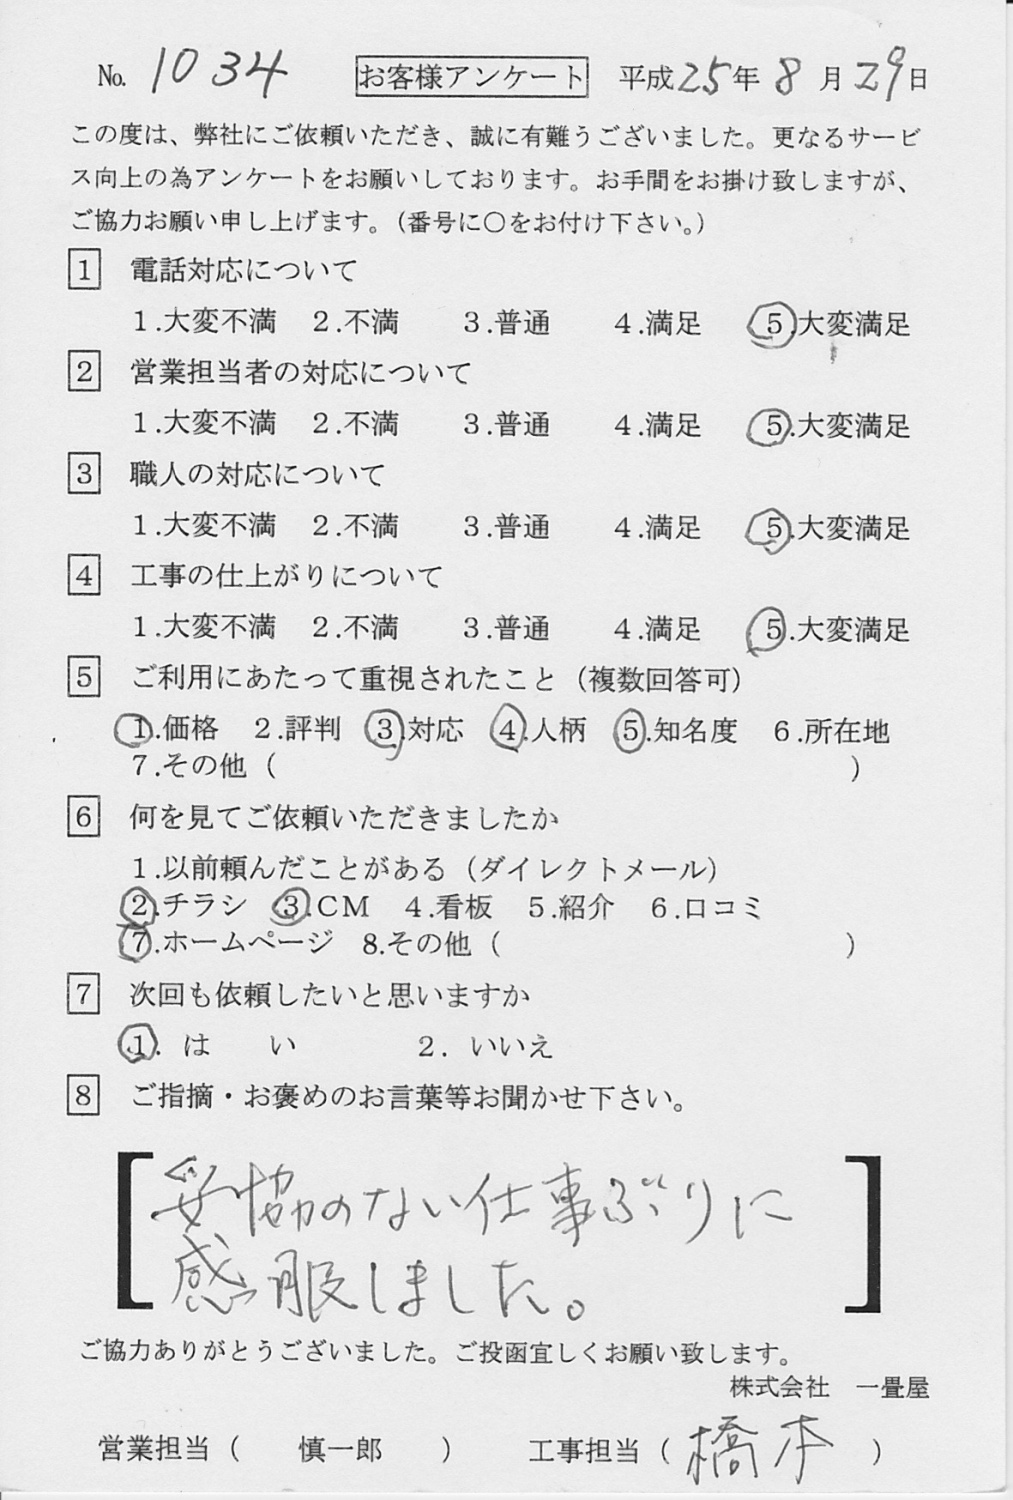 No. 1034 お客様アンケート 平成25年8月29日
この度は、弊社にご依頼いただき、誠に有難うございました。更なるサービ
ス向上の為アンケートをお願いしております。お手間をお掛け致しますが、
ご協力お願い申し上げます。(番号に○をお付け下さい。)
1 電話対応について
1.大変不満 2.不満 3.普通 4.満足 5.大変満足
2 営業担当者の対応について
1.大変不満 2.不満 3.普通 4.満足 5.大変満足
3 職人の対応について
1.大変不満 2.不満 3.普通 4.満足 5.大変満足
4 工事の仕上がりについて
1.大変不満 2.不満 3.普通 4.満足 5.大変満足
5 ご利用にあたって重視されたこと(複数回答可)
1.価格 2.評判 3.対応 4.人柄 5.知名度 6.所在地
7.その他( )
6 何を見てご依頼いただきましたか
1.以前頼んだことがある(ダイレクトメール)
2.チラシ 3.CM 4.看板 5.紹介 6.口コミ
7.ホームページ 8.その他( )
7 次回も依頼したいと思いますか
1. はい 2. いいえ
8 ご指摘・お褒めのお言葉等お聞かせ下さい。
妥協のない仕事ぶりに
感服しました。
ご協力ありがとうございました。ご投函宜しくお願い致します。
株式会社 一畳屋
営業担当( 慎一郎 ) 工事担当( 橋本 )